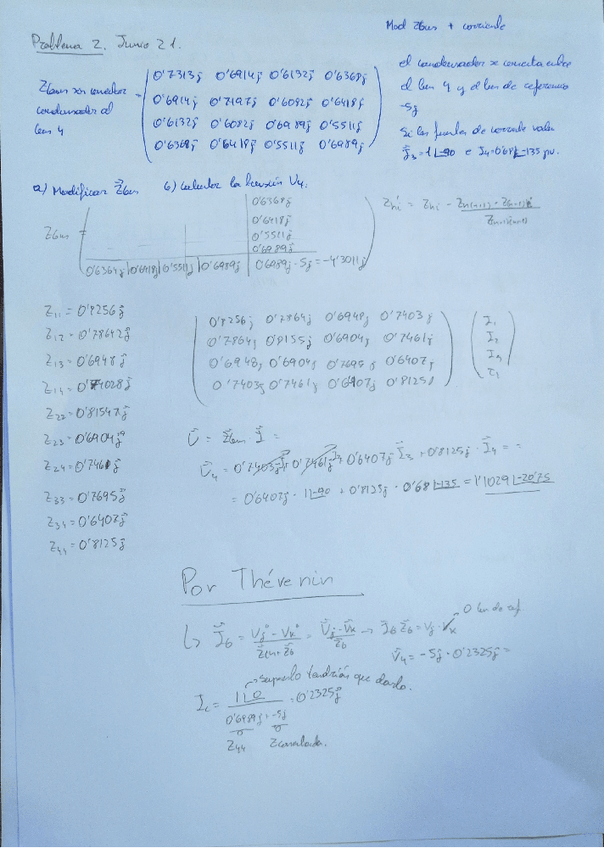 Mod Zbus + corriente
Problema 2. Junio 21.
Zbus sin conectar condensador al bus 4 =
0'7313j 0'6914j 0'6132j 0'6368j
0'6914j 0'7197j 0'6082j 0'6418j
0'6132j 0'6082j 0'6989j 0'5511j
0'6368j 0'6418j 0'5511j 0'6989j
el condensador se conecta entre
el bus 4 y el bus de referencia
-5j
Si las fuentes de corriente valen
I3=1∟-90 e I4=0'68∟-135 pu.
a) Modificar Zbus b) Calcular la tensión V4.
Zbus
0'6368j
0'6418j
0'5511j
0'6989j
0'6364j | 0'6418j | 0'5511j | 0'6989j | 0'6989j - 5j = -4'3011j
Z11 = 0'8256j
Z12 = 0'78642j
Z13 = 0'6948j
Z14 = 0'74028j
Z22 = 0'81547j
Z23 = 0'6904j
Z24 = 0'7461j
Z33 = 0'7695j
Z34 = 0'6407j
Z44 = 0'8125j
0'8256j 0'7864j 0'6948j 0'7403j
0'7864j 0'8155j 0'6904j 0'7461j
0'6948j 0'6904j 0'7695j 0'6407j
0'7403j 0'7461j 0'6407j 0'8125j
U = Zbus I =
U4 = 0'7403j 0'7461j 0'6407j I3 + 0'8125j · I4 = =
= 0'6407j · 1∟-90 + 0'8125j · 0'68∟-135 = 1'1029∟-20'75
Por Thévenin
0 bus de ref
V4 = -5j · 0'2325j =
supongo tendrían que darlo.
Ic = 1∟0 = 0'2325j
0'6989j + -5j
Z44 Zconectada.